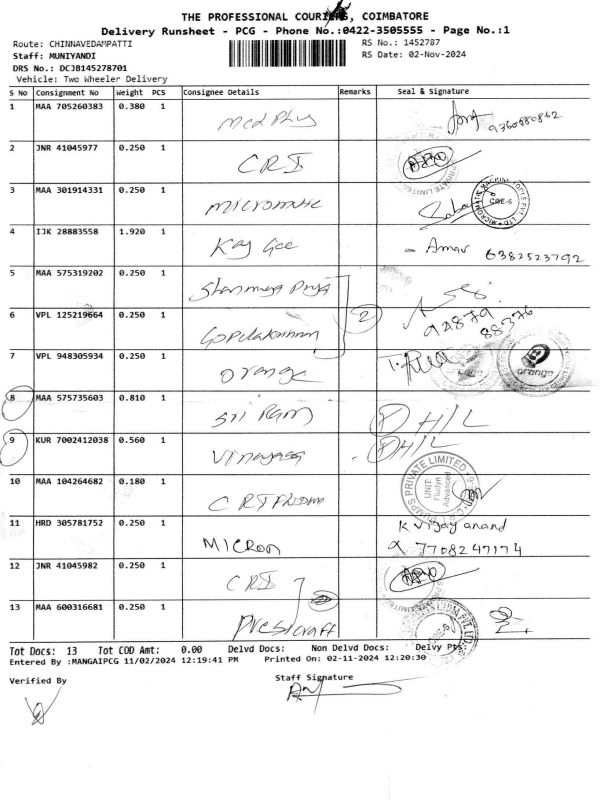 THE PROFESSIONAL COURIERS, COIMBATORE
Delivery Runsheet - PCG - Phone No.:0422-3505555 - Page No.:1
Route: CHINNAVEDAMPATTI RS No.: 1452787
Staff: MUNIYANDI RS Date: 02-Nov-2024
DRS No.: DCJB145278701
Vehicle: Two Wheeler Delivery
S No Consignment No Weight PCS Consignee Details Remarks Seal & Signature
1 MAA 705260383 0.380 1 Med Plus 9360880862
2 JNR 41045977 0.250 1 CRI
PRIVATE LIMITED
3 MAA 301914331 0.250 1 micromatic
CBE-6
4 IJK 28883558 1.920 1 Kay Gee - Amar 6382523792
5 MAA 575319202 0.250 1 Shanmuga Priya
6 VPL 125219664 0.250 1 Gopalakrishnan 2 94879 88376
7 VPL 948305934 0.250 1 orange
orange
8 MAA 575735603 0.810 1 Sri Ram H/L
9 KUR 7002412038 0.560 1 Vinayaga H/L
10 MAA 104264682 0.180 1 CRI Fludyn
PUMPS PRIVATE LIMITED
UNIT:
Fludyn
Advanced
11 HRD 305781752 0.250 1 MICRON K Vijay anand
7708247174
12 JNR 41045982 0.250 1 CRI
13 MAA 600316681 0.250 1 Presicraft
Tot Docs: 13 Tot COD Amt: 0.00 Delvd Docs: Non Delvd Docs: Delvy Pts
Entered By :MANGAIPCG 11/02/2024 12:19:41 PM Printed On: 02-11-2024 12:20:30
Verified By Staff Signature